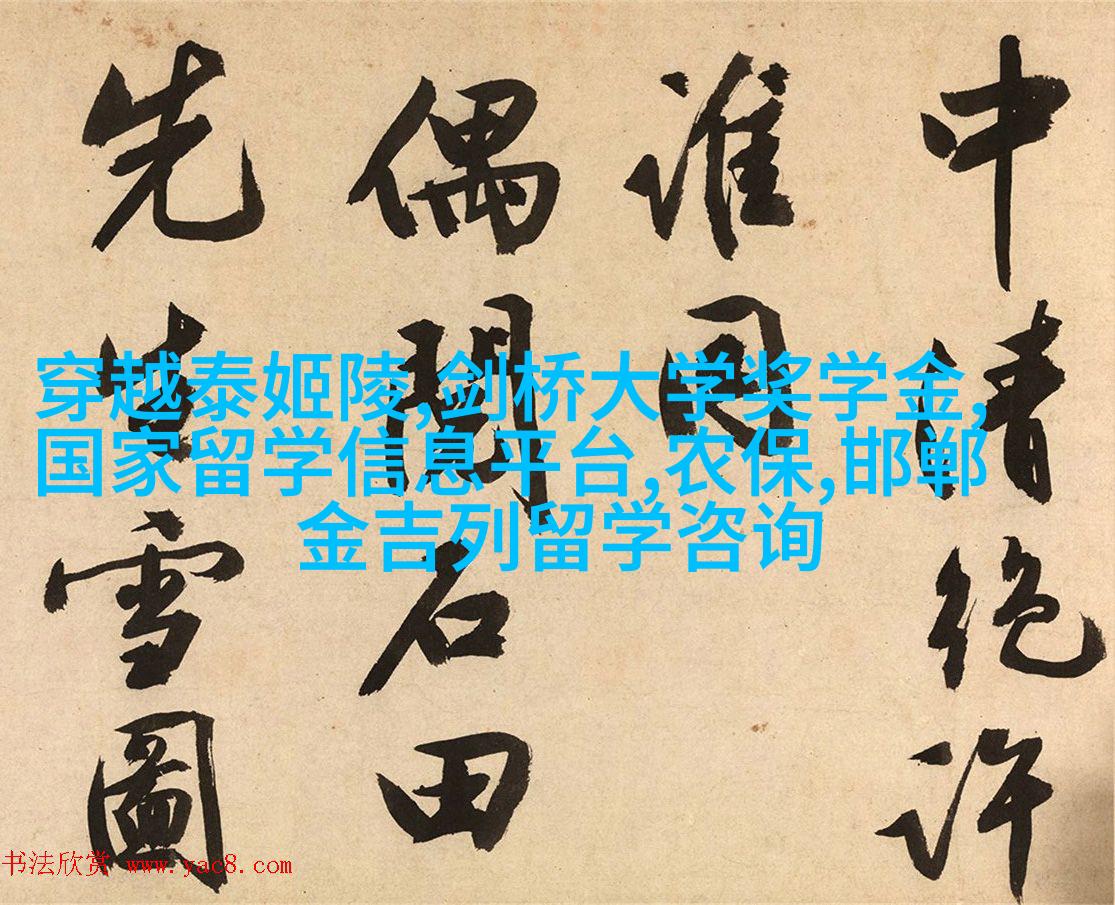 中情絶許
誰同
偶閲石田
先生雪圖
穿越泰姬陵,剑桥大学奖学金,
国家留学信息平台,农保,邯郸
金吉列留学咨询
书法欣赏 www.yac8.com